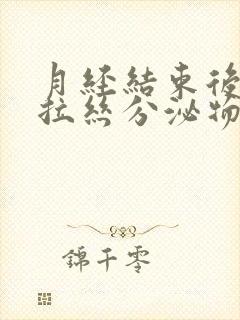 月經結束後
拉絲分泌物
錦千零